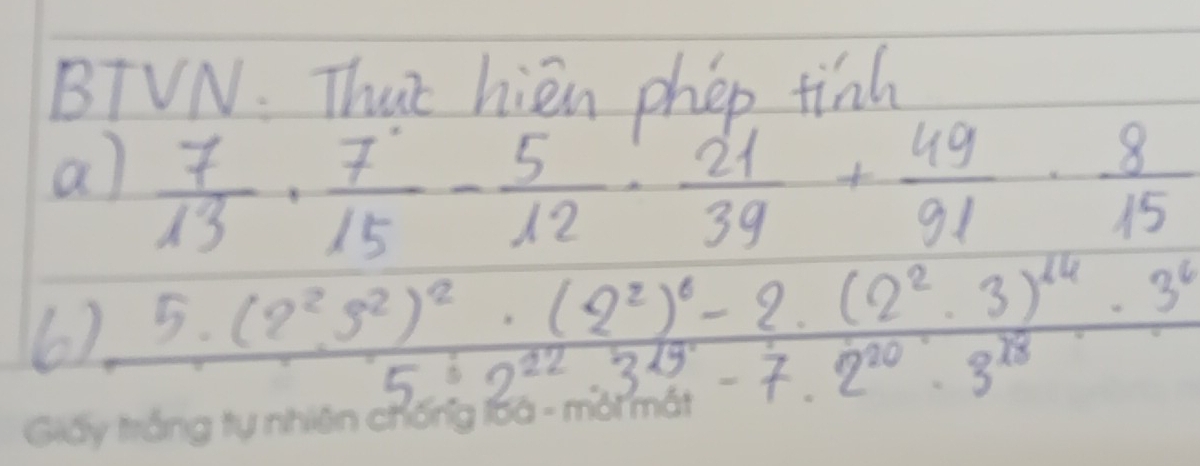 BTVN: Thực hiên phép tính
a) 7/13 . 7/15 - 5/12 . 21/39 + 49/91 . 8/15
b) 5.(2² 3²)² . (2²)⁶ - 2.(2² . 3)¹⁴ . 3⁶
5 . 2²² 3¹⁹ - 7 . 2²⁰ . 3¹⁸
Giấy trắng tự nhiên chống loá - mỏi mắt